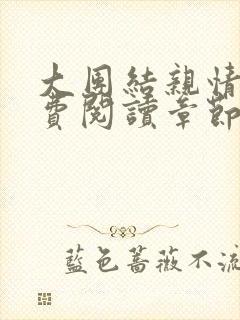 大團結親情
費閱讀章節
藍色薔薇不流